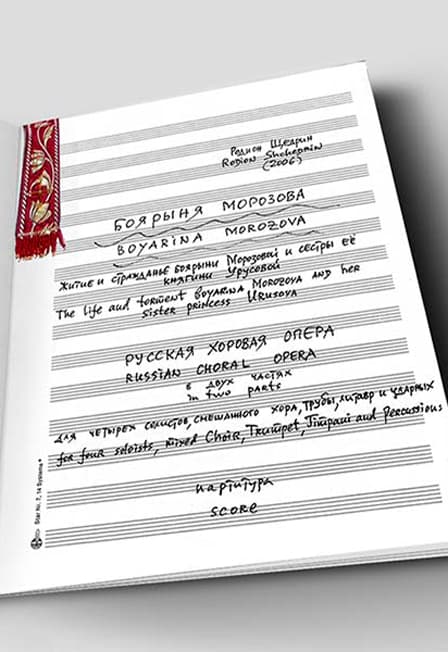 Родион Щедрин
Rodion Shchedrin
(2006)
БОЯРЫНЯ МОРОЗОВА
BOYARINA MOROZOVA
Житие и страданье боярыни Морозовой и сестры её
княгини Урусовой
The life and torment BOYARINA MOROZOVA and her
sister princess URUSOVA
РУССКАЯ ХОРОВАЯ ОПЕРА
RUSSIAN CHORAL OPERA
в двух частях
in two parts
для четырех солистов, смешанного хора, трубы, литавр и ударных
for four soloists, mixed Choir, Trumpet, Timpani and percussions
партитура
score
Star Nr. 7, 14 Systeme